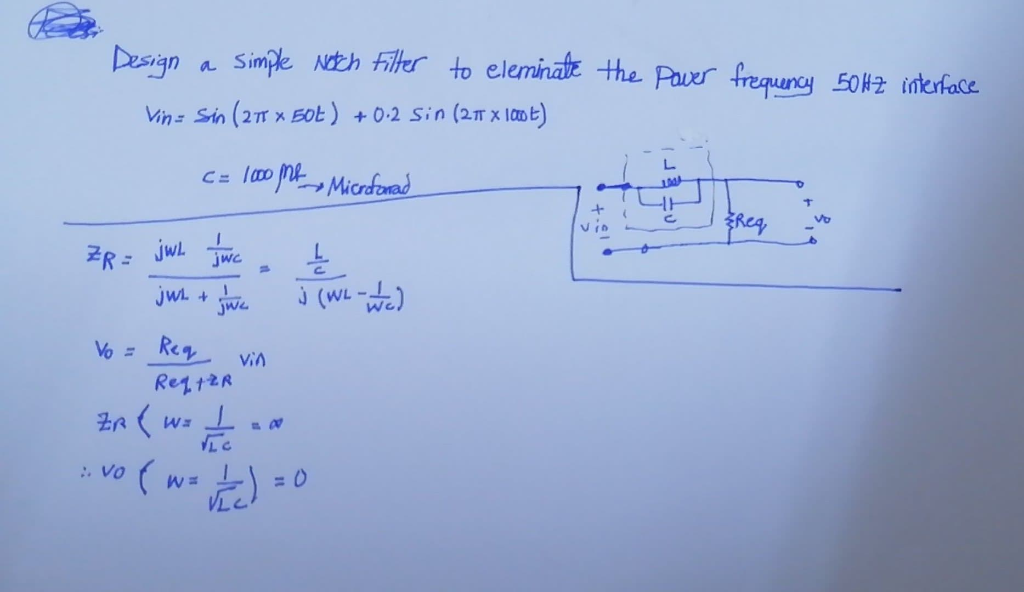 Design a simple Notch Filter to eleminate the Power frequency 50Hz interface
Vin = Sin (2π x 50t) + 0.2 Sin (2π x 1000t)
C = 1000 Mf → Microfarad
L
C
+
Vin
-
Req
+
Vo
-
ZR = jwL 1/jwc / jwL + 1/jwc = L/C / j (WL - 1/WC)
Vo = Req / Req + ZR Vin
ZR ( W = 1/√LC = ∞
∴ VO ( W = 1/√LC ) = 0